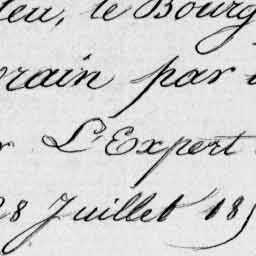 ieu, le Bourg
rain par
L'Expert
28 Juillet 185